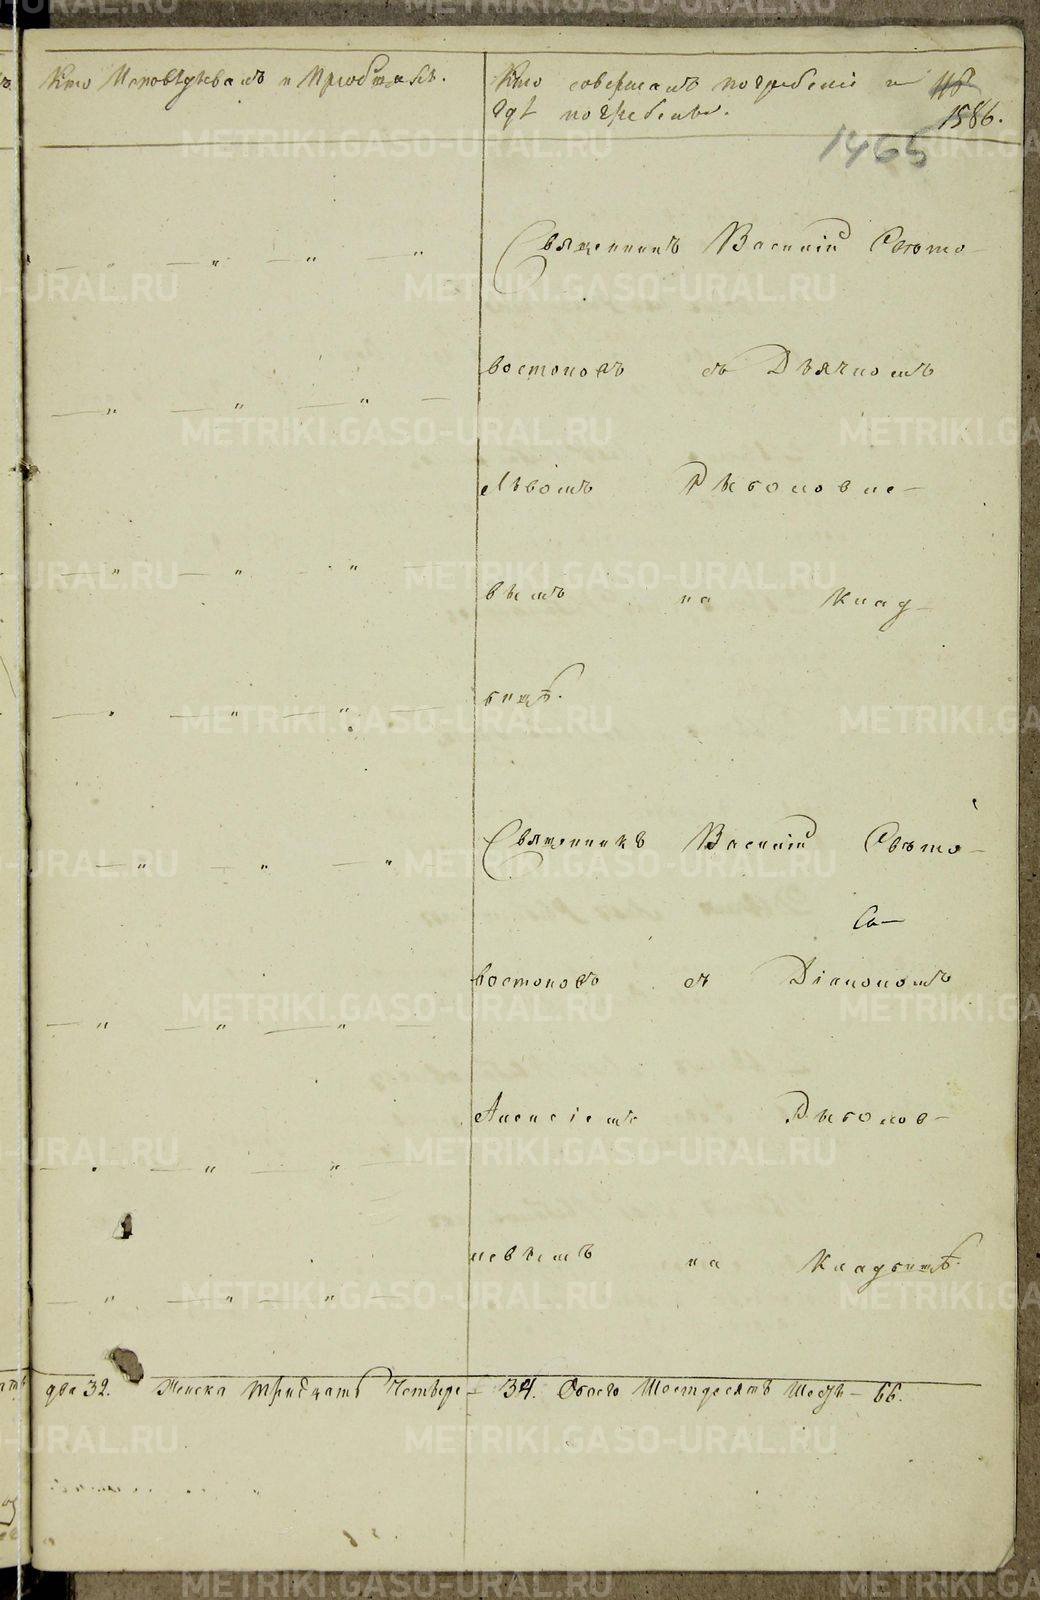 Кто Исповѣдывалъ и Пріобщалъ.
Кто совершалъ погребеніе и
гдѣ погребены.
1586.
1465
Священникъ Василій Свѣто-
востоковъ съ Дьячкомъ
Львомъ
вымъ на Клад-
бищѣ.
Священникъ Василій Свѣто-
востоковъ съ Діакономъ
Алексіемъ
невымъ на Кладбищѣ.
два 32. Женска тридцать Четыре - 34. Обоего Шестдесятъ Шесть - 66.
METRIKI.GASO-URAL.RU